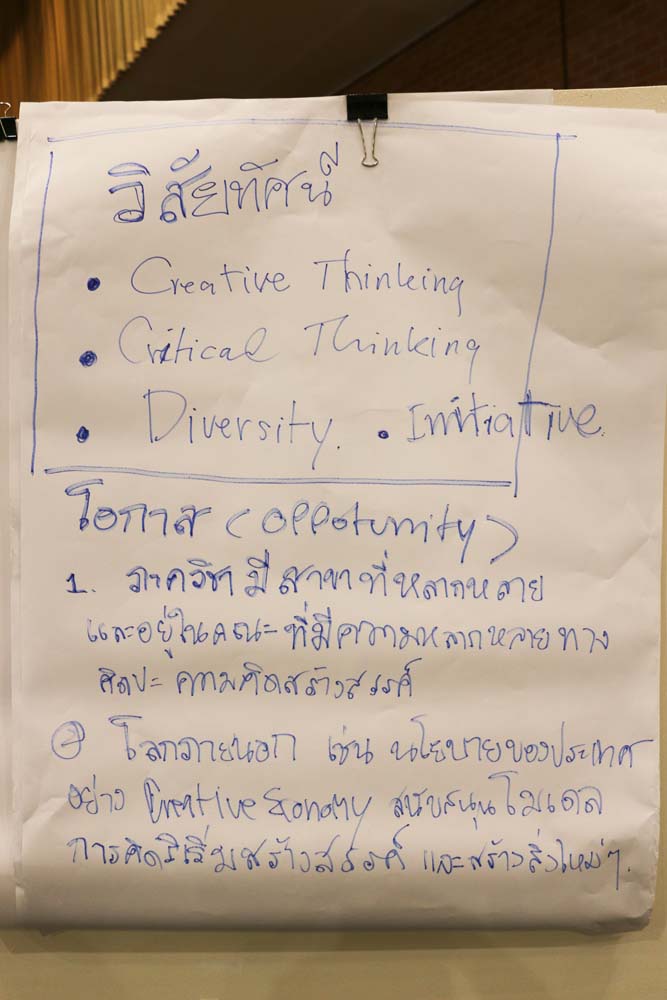 วิสัยทัศน์
• Creative Thinking
• Critical Thinking
• Diversity. • Initiative.
โอกาส (Oppotunity)
1. ภาควิชามีสาขาที่หลากหลาย
และอยู่ในคณะที่มีความหลากหลายทาง
ศิลปะ ความคิดสร้างสรรค์
② โลกภายนอก เช่น นโยบายของประเทศ
อย่าง Creative Economy สนับสนุนโมเดล
การคิดริเริ่มสร้างสรรค์ และสร้างสิ่งใหม่ๆ.